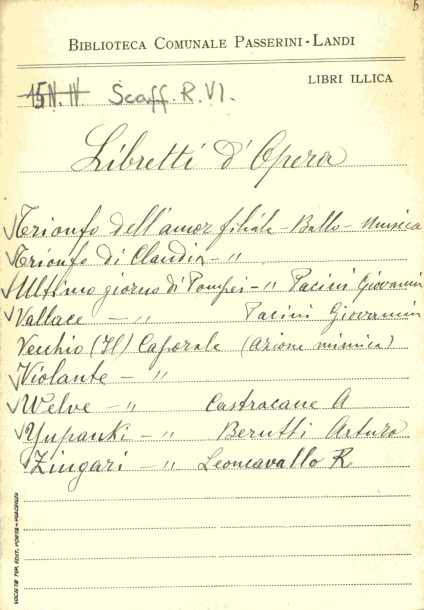 5
BIBLIOTECA COMUNALE PASSERINI-LANDI
LIBRI ILLICA
15N. IV Scaff. R. VI.
Libretti d'Opera
Trionfo dell'amor filiale - Ballo - Musica
Trionfo di Claudia - "
Ultimo giorno di Pompei - " Pacini Giovanni
Vallace - " Pacini Giovannin
Vecchio (Il) Caporale (azione mimica)
Violante - "
Welve - " Castracane A
Yupanki - " Berutti Arturo
Zingari - " Leoncavallo R
SOCIETÀ TIP. EDIT. PORTA - PIACENZA